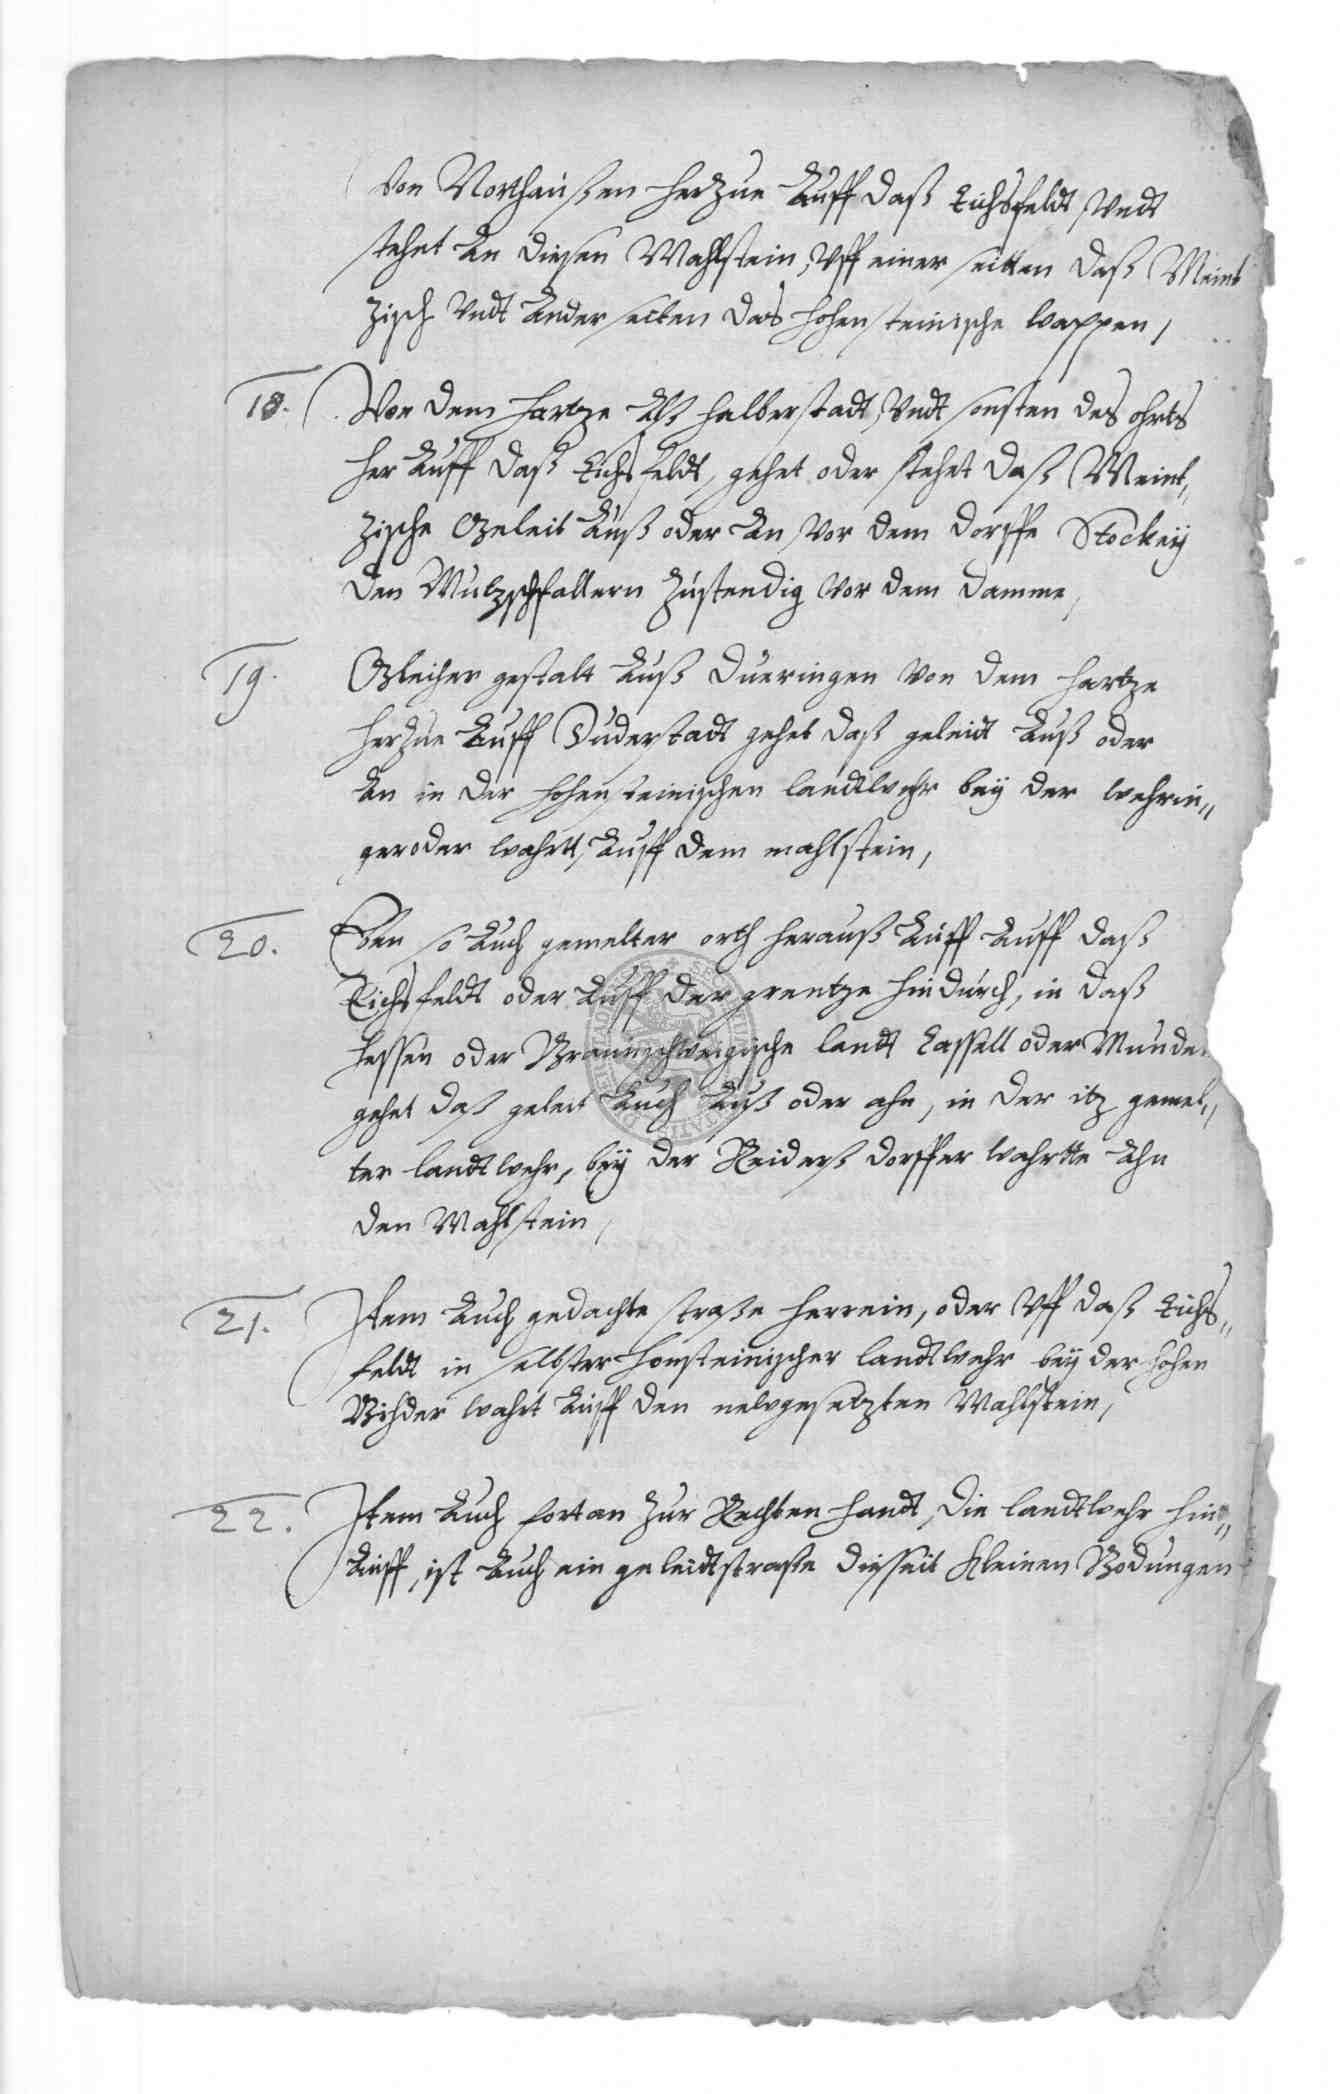 Von Northaußen herzue Auff daß Eichsfeldt, Undt
stehet An diesen Mahlstein, Uff einer seitten daß Meint
zisch Undt Ander seiten das hohensteinische wappen,
18. Von dem Hartze Alß halberstadt, Undt sonsten des ohrts
her Auff daß Eichsfeldt, gehet oder stehet daß Meint„
zische Geleit Auß oder An vor dem dorffe Stockeÿ
den Mutzschfallern zustendig vor dem damme,
19. Gleicher gestalt Auß Dueringen von dem Hartze
herzue Auff Duderstadt gehet daß geleidt Auß oder
An in der hohensteinischen landtwehr beÿ der wehrin„
geroder wahrtt, Auff dem mahlstein,
20. Eben so Auch gemelter orth herauß Auff Auff daß
Eichsfeldt oder Auff der grentze hindurch, in daß
Hessen oder Braunschweigische landt Cassell oder Munden
gehet daß geleit Auch Auß oder ahn, in der itz gemel„
ter landtwehr, beÿ der Reiderß dorffer wahrtte Ahn
den Mahlstein,
21. Item Auch gedachte straße herrein, oder Uff daß Eichs„
feldt in selbster honsteinischer landtwehr beÿ der hohen
wahrt Auff den newgesetzten Mahlstein,
22. Item Auch fortan zur Rechten handt, die landtwehr hin„
Auff, ist Auch ein geleidtstraße disseit Kleinen Bodungen